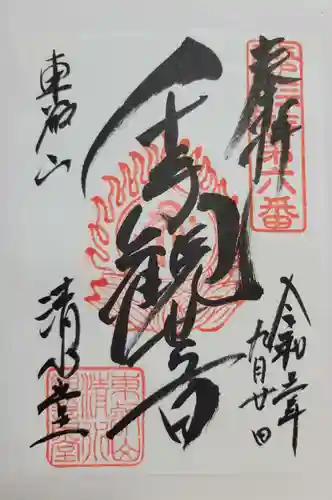 奉拝
第六番
令和三年
九月廿日
千手観世音
東叡山
清水堂
東叡山
清水
観音堂